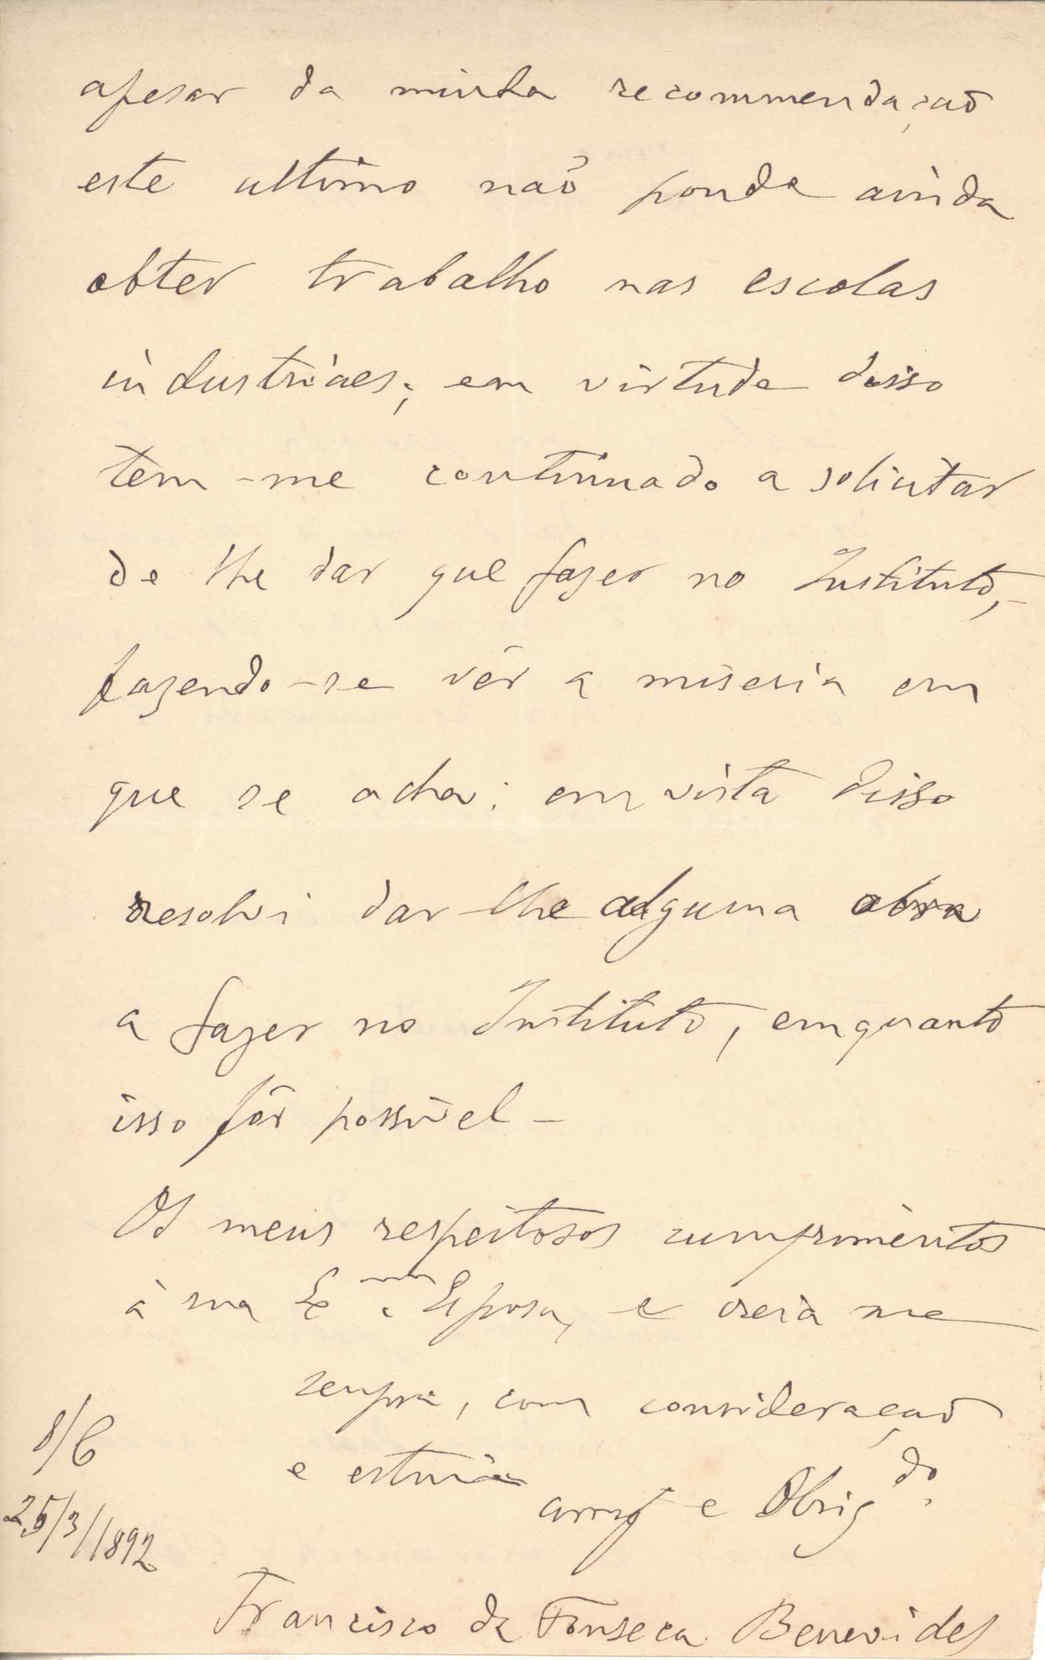 apesar da minha recommendação
este ultimo não poude ainda
obter trabalho nas escolas
industriaes; em virtude disso
tem-me continuado a solicitar
de lhe dar que fazer no Instituto,
fazendo-se vêr a miseria em
que se acha; em vista disso
resolvi dar-lhe alguma obra
a fazer no Instituto, emquanto
isso fôr possivel –
Os meus respeitosos cumprimentos
á sua Ex.ma Esposa, e creia me
sempre, com consideração
e estima
amg e Obrig.do
8/C
25/3/1892
Francisco da Fonseca Benevides